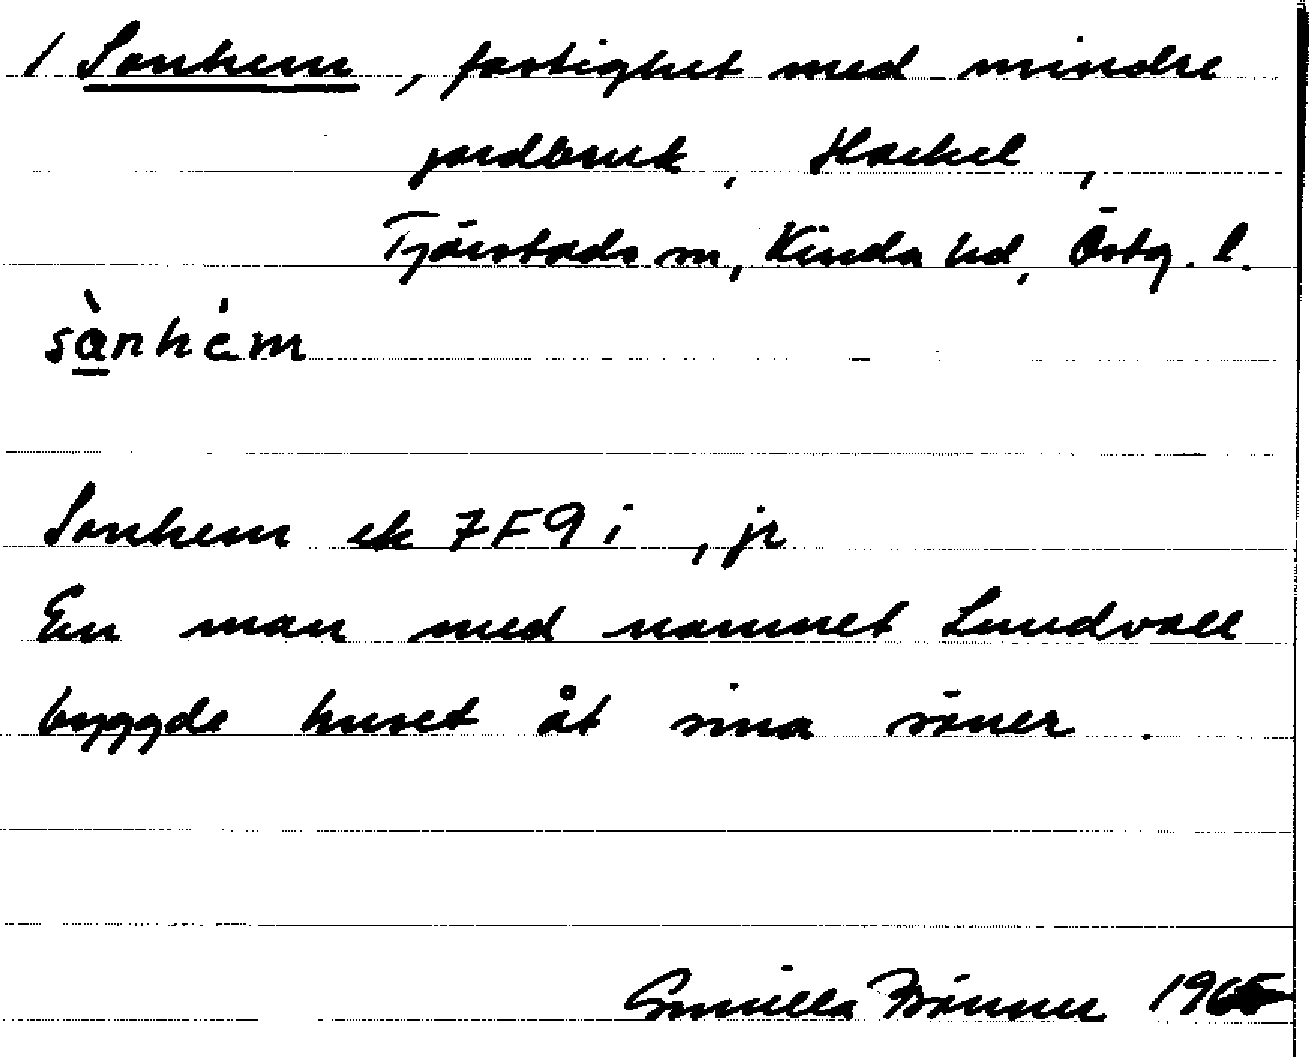 / Sonhem, fastighet med mindre
jordbruk, Hackel,
Tjärstads sn, Kinda hd, Östg. l.
sànhém
Sonhem ek 7F9i, jr
En man med namnet Lundvall
byggde huset åt sina söner.
Gunilla 1965